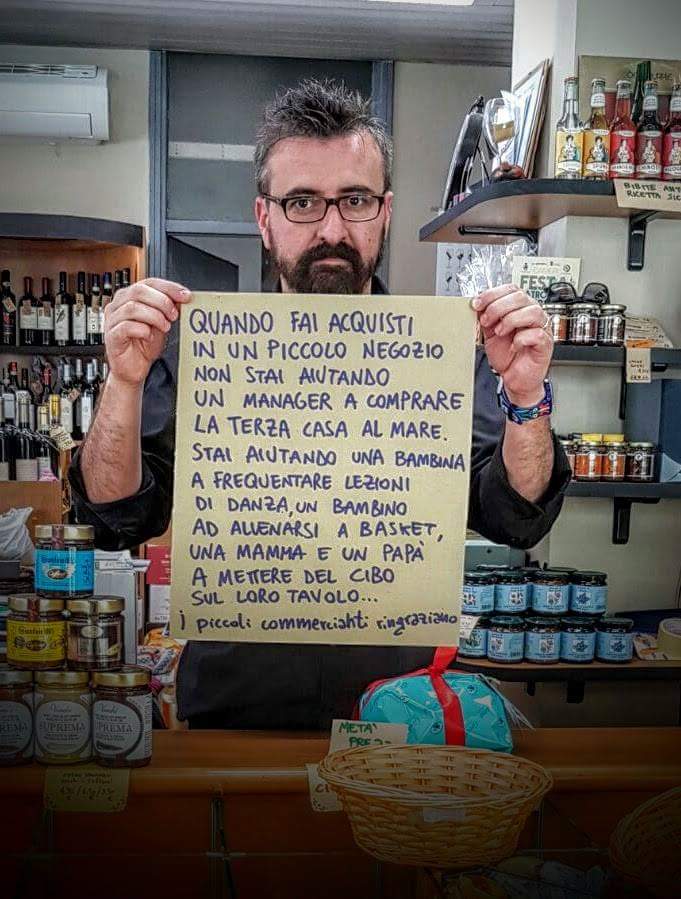 QUANDO FAI ACQUISTI
IN UN PICCOLO NEGOZIO
NON STAI AIUTANDO
UN MANAGER A COMPRARE
LA TERZA CASA AL MARE.
STAI AIUTANDO UNA BAMBINA
A FREQUENTARE LEZIONI
DI DANZA, UN BAMBINO
AD ALLENARSI A BASKET,
UNA MAMMA E UN PAPÀ
A METTERE DEL CIBO
SUL LORO TAVOLO...
i piccoli commercianti ringraziano
BIBITE
RICETTA
FESTA
SUPREMA
SUPREMA
META'
PREZZ